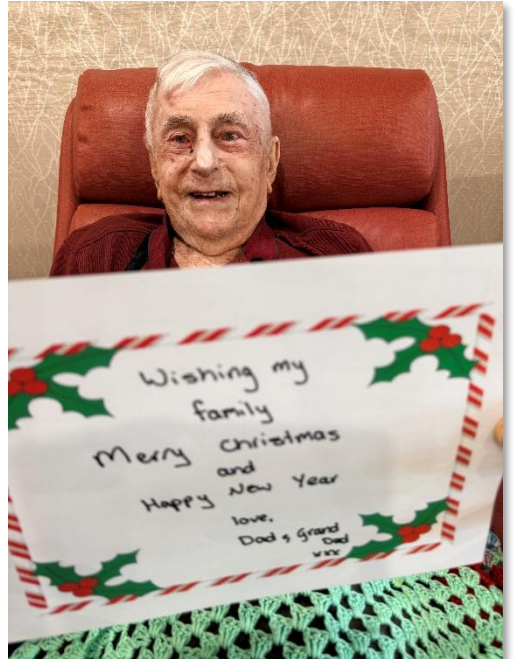 Wishing my
family
Merry Christmas
and
Happy New Year
love,
Dad & Grand
Dad
xxx